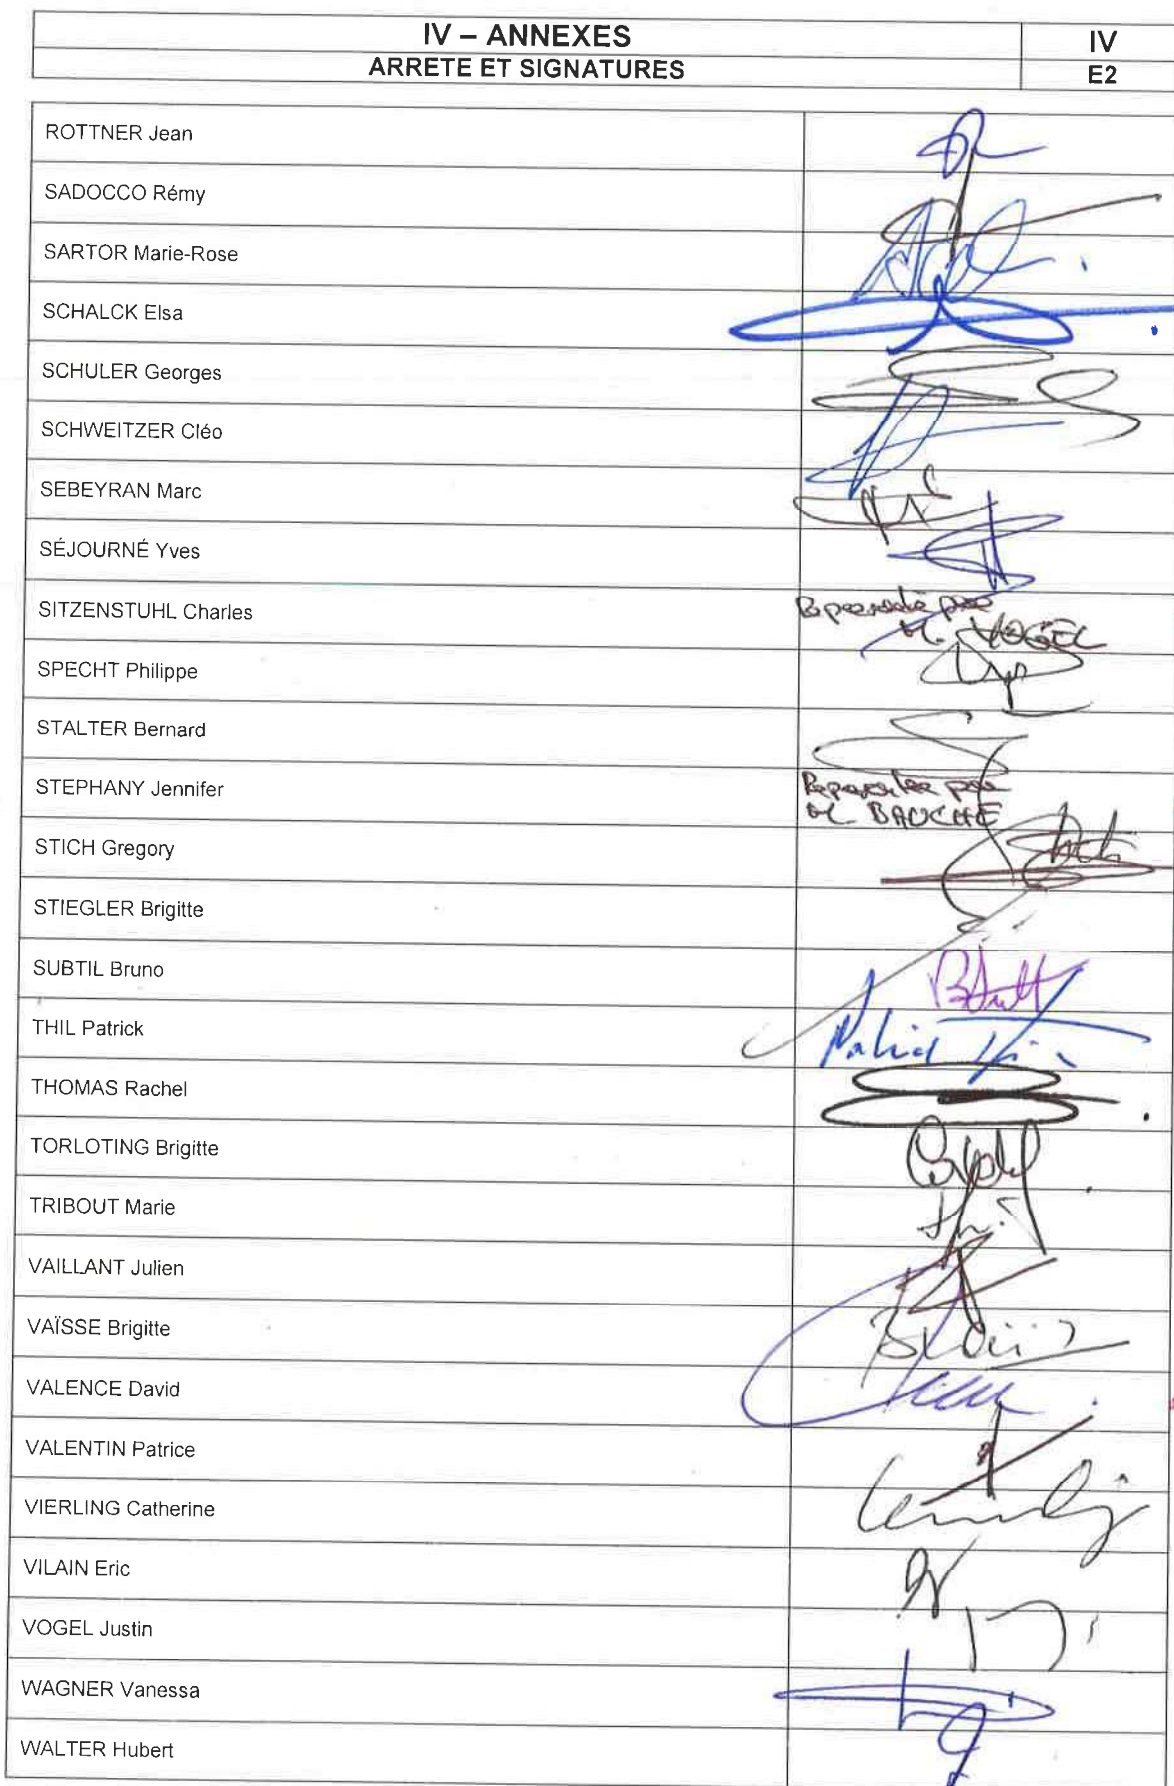 IV – ANNEXES
IV
ARRETE ET SIGNATURES
E2
ROTTNER Jean
SADOCCO Rémy
SARTOR Marie-Rose
SCHALCK Elsa
SCHULER Georges
SCHWEITZER Cléo
SEBEYRAN Marc
SÉJOURNÉ Yves
SITZENSTUHL Charles
par
M. VOGEL
SPECHT Philippe
STALTER Bernard
STEPHANY Jennifer
par
M. BAUCHE
STICH Gregory
STIEGLER Brigitte
SUBTIL Bruno
THIL Patrick
THOMAS Rachel
TORLOTING Brigitte
TRIBOUT Marie
VAILLANT Julien
VAÏSSE Brigitte
VALENCE David
VALENTIN Patrice
VIERLING Catherine
VILAIN Eric
VOGEL Justin
WAGNER Vanessa
WALTER Hubert